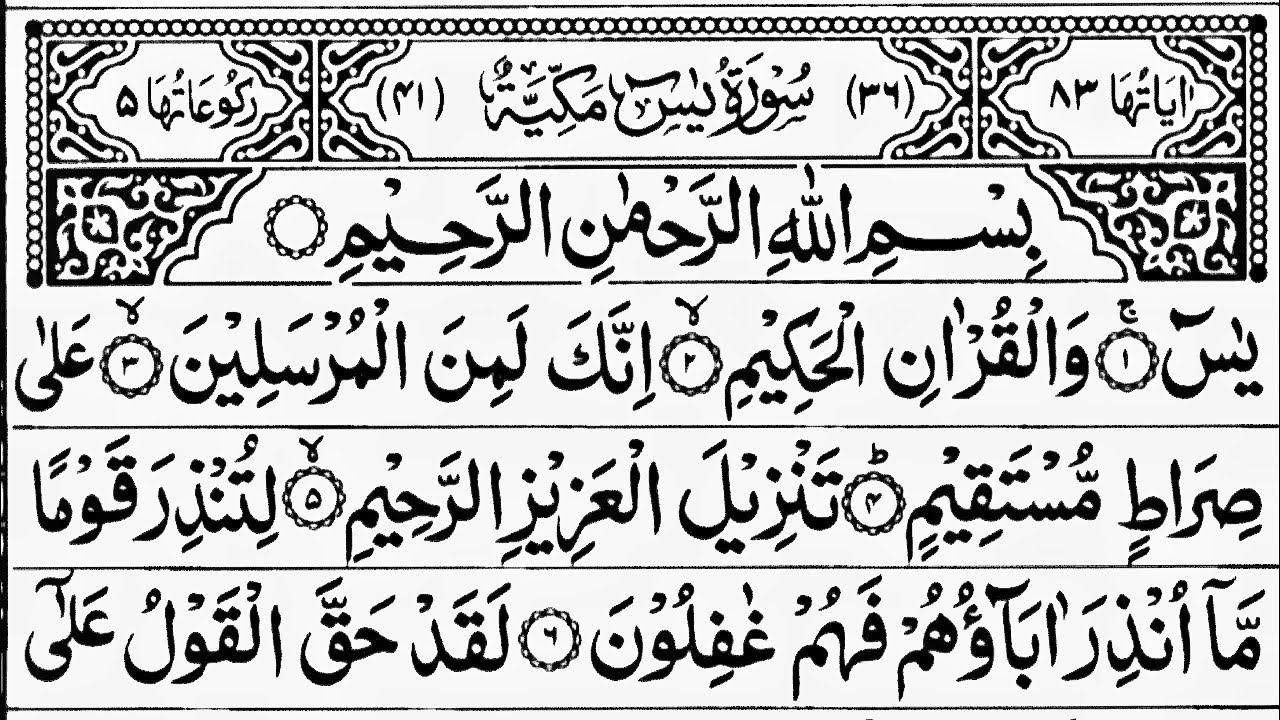 اٰيَاتُهَا ۸۳ (۳۶) سُوْرَةُ يٰسٓ مَكِّيَّةٌ (۴۱) رُكُوْعَاتُهَا ۵
بِسْمِ اللّٰهِ الرَّحْمٰنِ الرَّحِيْمِ
يٰسٓ ۚ﴿۱﴾ وَالْقُرْاٰنِ الْحَكِيْمِ ۙ﴿۲﴾ اِنَّكَ لَمِنَ الْمُرْسَلِيْنَ ۙ﴿۳﴾ عَلٰى
صِرَاطٍ مُّسْتَقِيْمٍ ؕ﴿۴﴾ تَنْزِيْلَ الْعَزِيْزِ الرَّحِيْمِ ۙ﴿۵﴾ لِتُنْذِرَ قَوْمًا
مَّاۤ اُنْذِرَ اٰبَآؤُهُمْ فَهُمْ غٰفِلُوْنَ ﴿۶﴾ لَقَدْ حَقَّ الْقَوْلُ عَلٰٓى